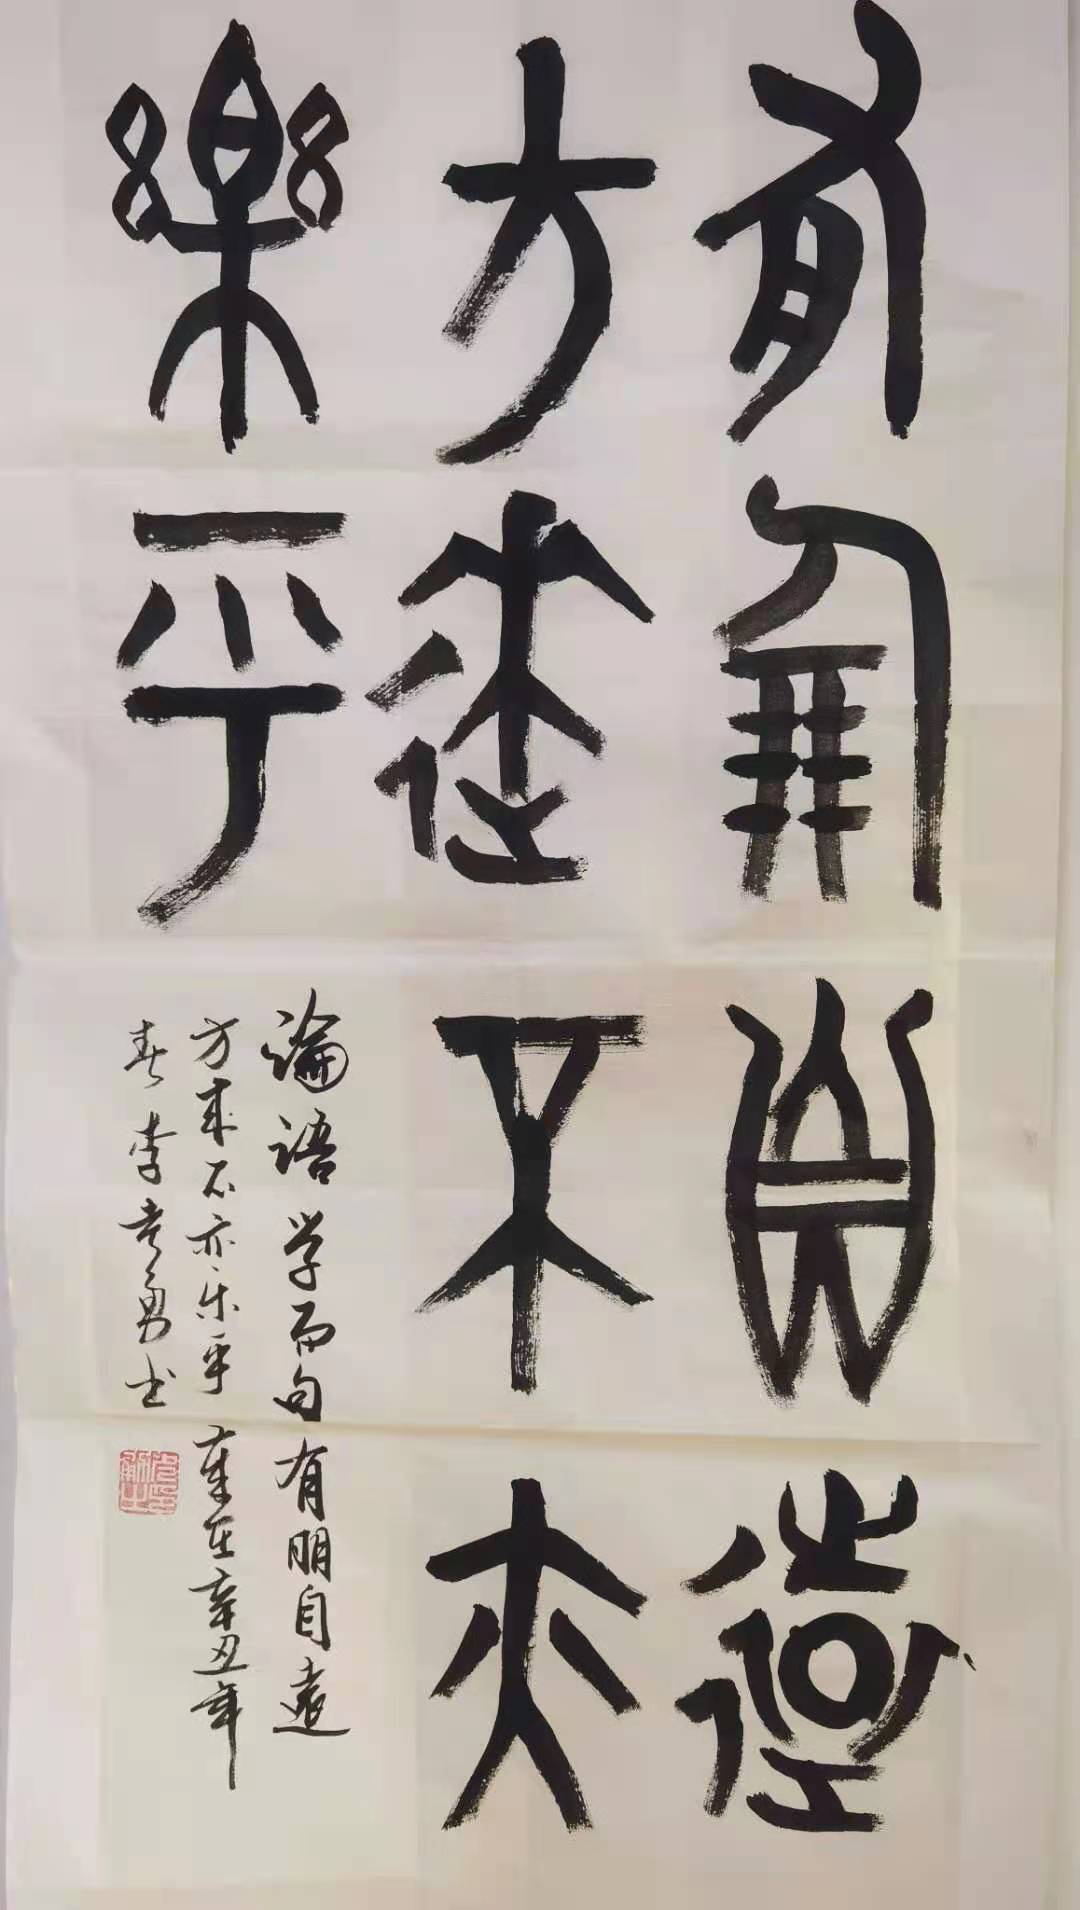 有朋自遠
方逨不亦
樂乎
論语学而句有朋自遠
方来不亦乐乎 辛丑年
春李
书